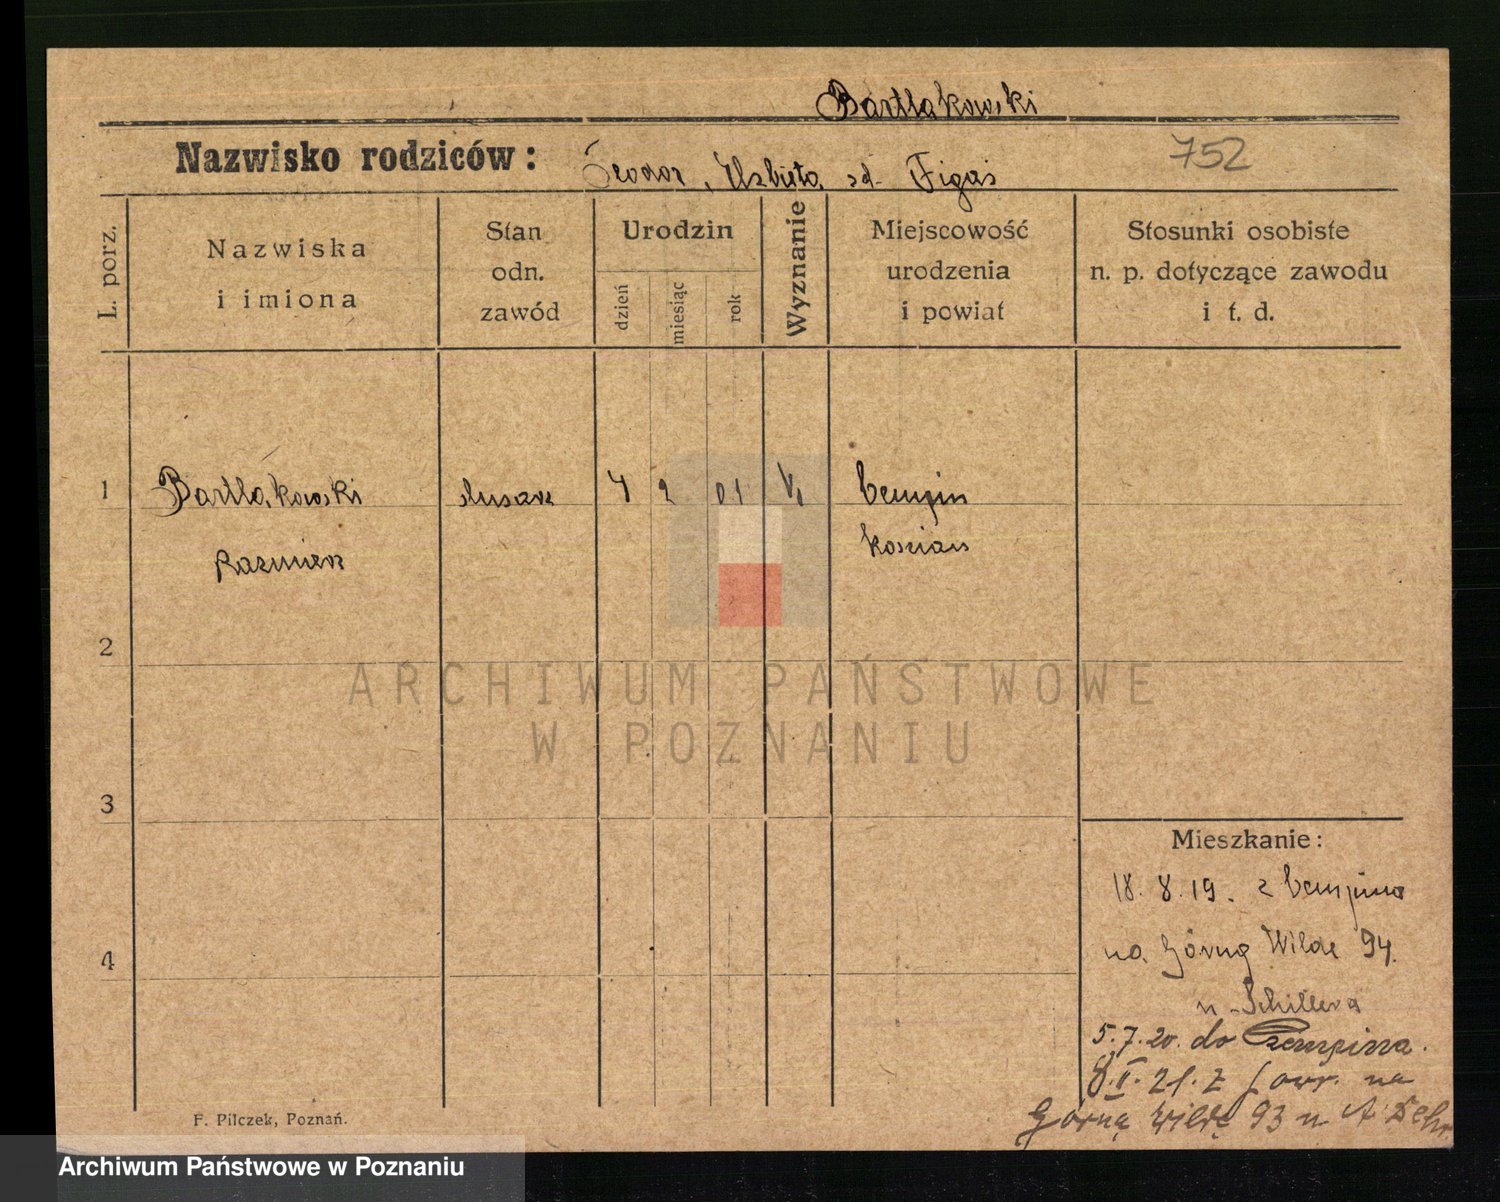 Bartlakowski
Nazwisko rodziców: Teodor, Elzbieta sd. Figas
752
L. porz.
Nazwiska
i imiona
Stan
odn.
zawód
Urodzin
dzień
miesiąc
rok
Wyznanie
Miejscowość
urodzenia
i powiat
Stosunki osobiste
n. p. dotyczące zawodu
i t. d.
1 Bartlakowski slusarz 4 2 01 Czempin
Kazmierz Koscian
2
ARCHIWUM PAŃSTWOWE
W POZNANIU
3
Mieszkanie:
18. 8. 19. z Czempina
4
na Górną Wilde 94.
u Schillera
5.7.20. do Czempina.
8.II.21. z powr. na
Górną Wildę 93 u
F. Pilczek, Poznań.
Archiwum Państwowe w Poznaniu